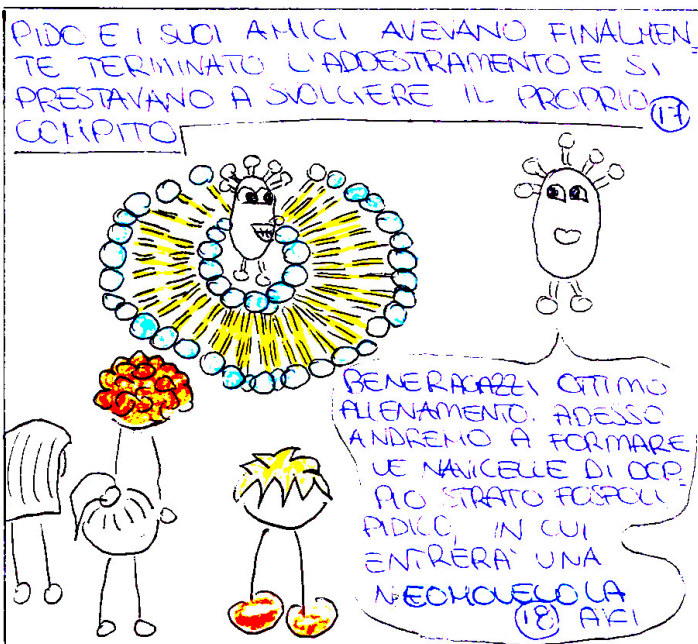 PIDO E I SUOI AMICI AVEVANO FINALMEN-
TE TERMINATO L'ADDESTRAMENTO E SI
PRESTAVANO A SVOLGIERE IL PROPRIO
COMPITO
17
BENE RAGAZZI OTTIMO
ALLENAMENTO. ADESSO
ANDREMO A FORMARE
LE NAVICELLE DI DOP-
PIO STRATO FOSFOLI
PIDICO, IN CUI
ENTRERA' UNA
NEOMOLECOLA
18